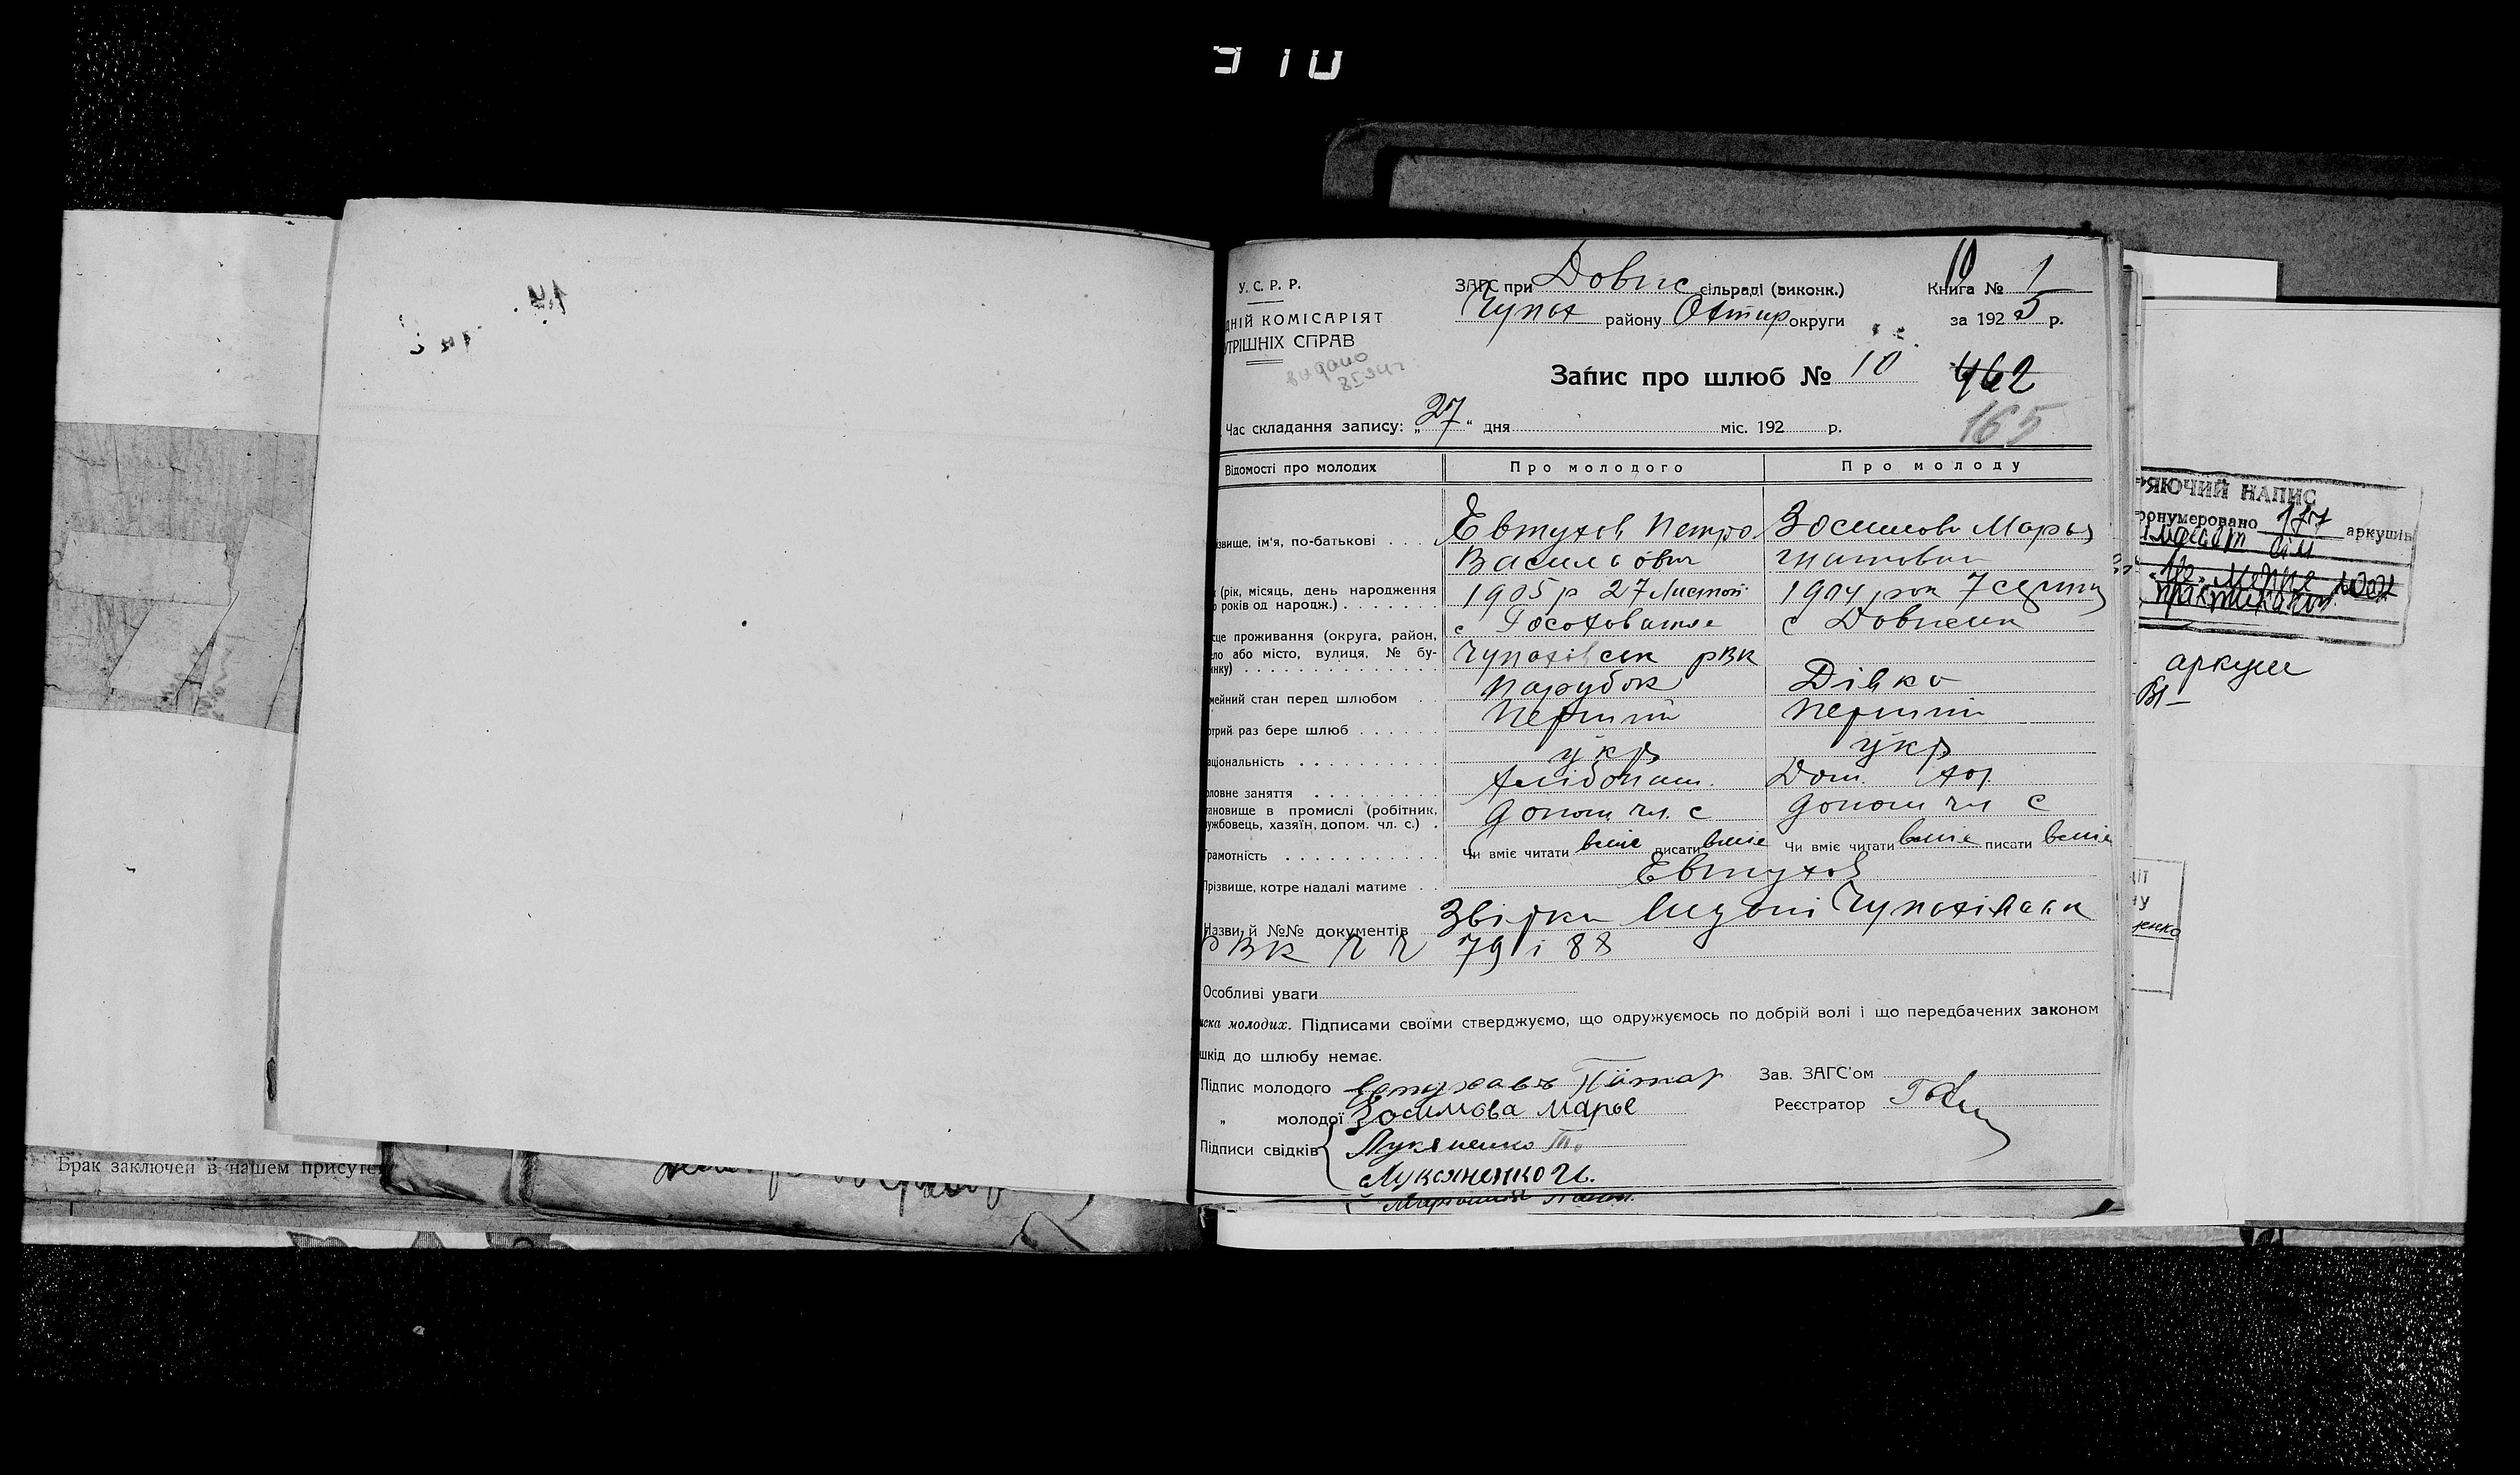 910
У. С. Р. Р.
ДНІЙ КОМІСАРІЯТ
УТРІШНІХ СПРАВ
видано
ЗАГС при Довж сільраді (виконк.)
Чупах району Охтир округи
10
Книга № 1
за 1925 р.
Запис про шлюб № 10
462
165
Час складання запису: „27" дня міс. 192 р.
Відомості про молодих Про молодого Про молоду
ізвище, ім'я, по-батькові . . . Евтухов Петро Зосимова Марья
Васильович
(рік, місяць, день народження 1905 р 27 Листоп 1904 рок 7 серпня
років од народж.) . . . . . . .
сце проживання (округа, район, с с
ело або місто, вулиця, № бу- Чупахівськ рВК
инку) . . . . . . . . . . . . . .
мейний стан перед шлюбом . . Парубок Дівка
отрий раз бере шлюб . . . . . . Перший Перший
аціональність . . . . . . . . . . укр укр
оловне заняття . . . . . . . . . Хлібопаш. Дом.
тановище в промислі (робітник, допом чл. с допом чл с
ужбовець, хазяїн, допом. чл. с.) .
рамотність . . . . . . . . . . . Чи вміє читати вміє писати вміє Чи вміє читати вміє писати вміє
Прізвище, котре надалі матиме . . Евтухов
Назви й №№ документів Звірки видані Чупахівськ
РВК ч ч 79 і 88
Особливі уваги
иска молодих. Підписами своїми стверджуємо, що одружуємось по добрій волі і що передбачених законом
шкід до шлюбу немає.
Підпис молодого Евтухавъ Зав. ЗАГС'ом
„ молодої Зосимова Марье Реєстратор
Підписи свідків Лукяненко Т.
Лукяненко И.
РЯЮЧИЙ НАПИС
ронумеровано 177 аркушів
аркуш
енко
Брак заключен в нашем присутс